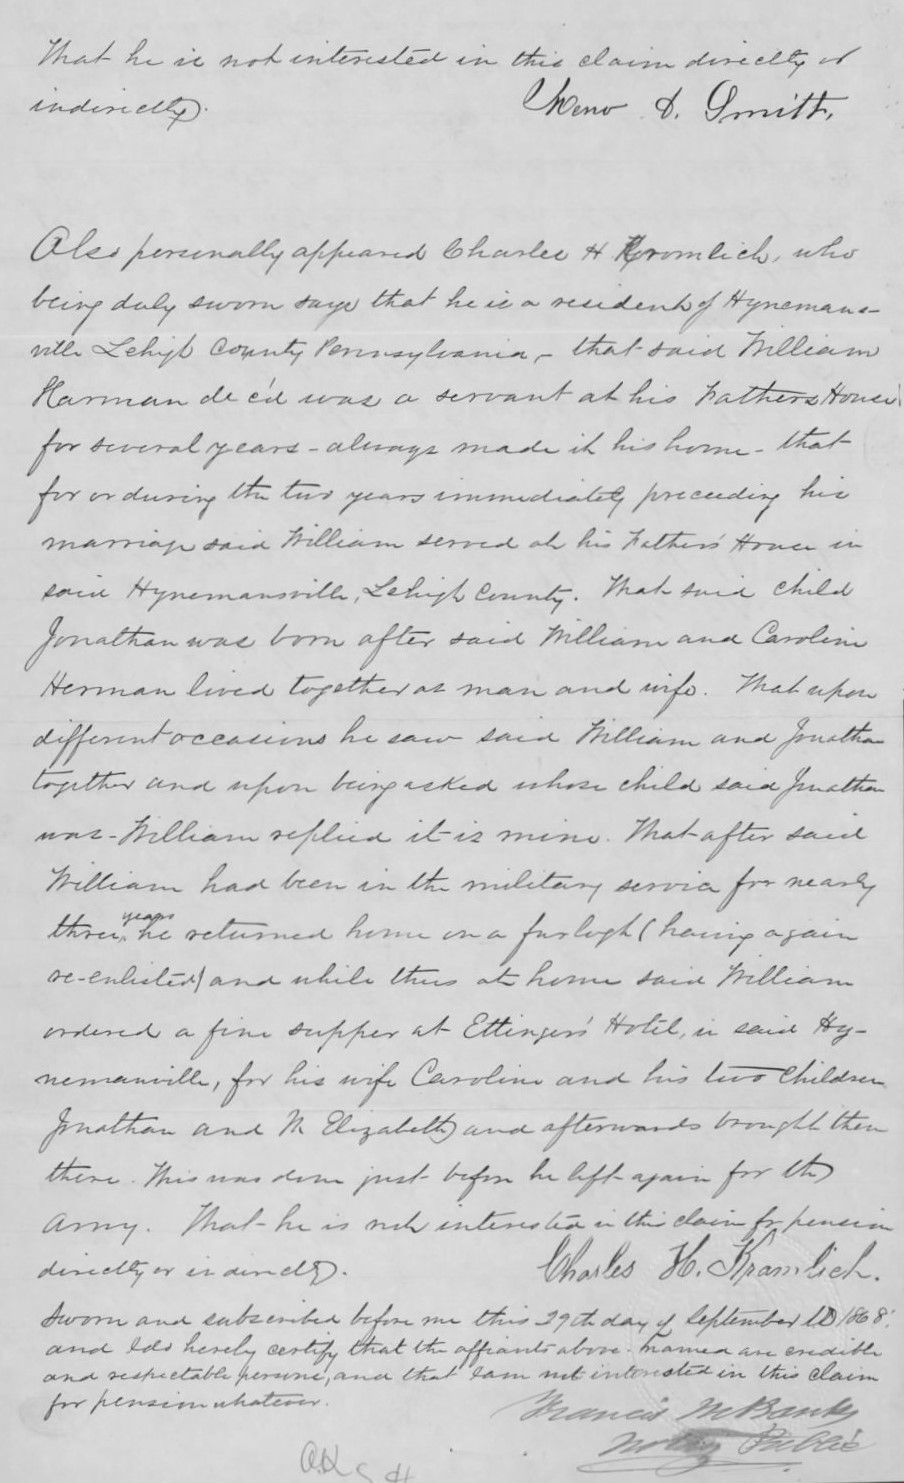 That he is not interested in this claim directly or
indirectly. D. Smith,
Also personally appeared Charles H Kromlich, who
being duly sworn says that he is a resident of Hynemans-
ville Lehigh County Pennsylvania, - that said William
Harman dec'd was a servant at his Fathers House
for several years - always made it his home - that
for or during the two years immediately preceeding his
marriage said William served at his Father's House in
said Hynemansville, Lehigh County. That said child
Jonathan was born after said William and Caroline
Herman lived together as man and wife. That upon
different occasions he saw said William and Jonathan
together and upon being asked whose child said Jonathan
was - William replied it is mine. That after said
William had been in the military service for nearly
three years he returned home on a furlogh (having again
re-enlisted) and while thus at home said William
ordered a fine supper at Ettinger's Hotel, in said Hy-
nemanville, for his wife Caroline and his two children
Jonathan and M Elizabeth) and afterwards brought them
there. This was done just before he left again for the
Army. That he is not interested in this claim for pension
directly or indirectly. Charles H. Kramlich.
Sworn and subscribed before me this 29th day of September AD 1868.
and I do hereby certify that the affiants above named are credible
and respectable persons, and that I am not interested in this claim
for pension whatever.
Francis
Notary Public